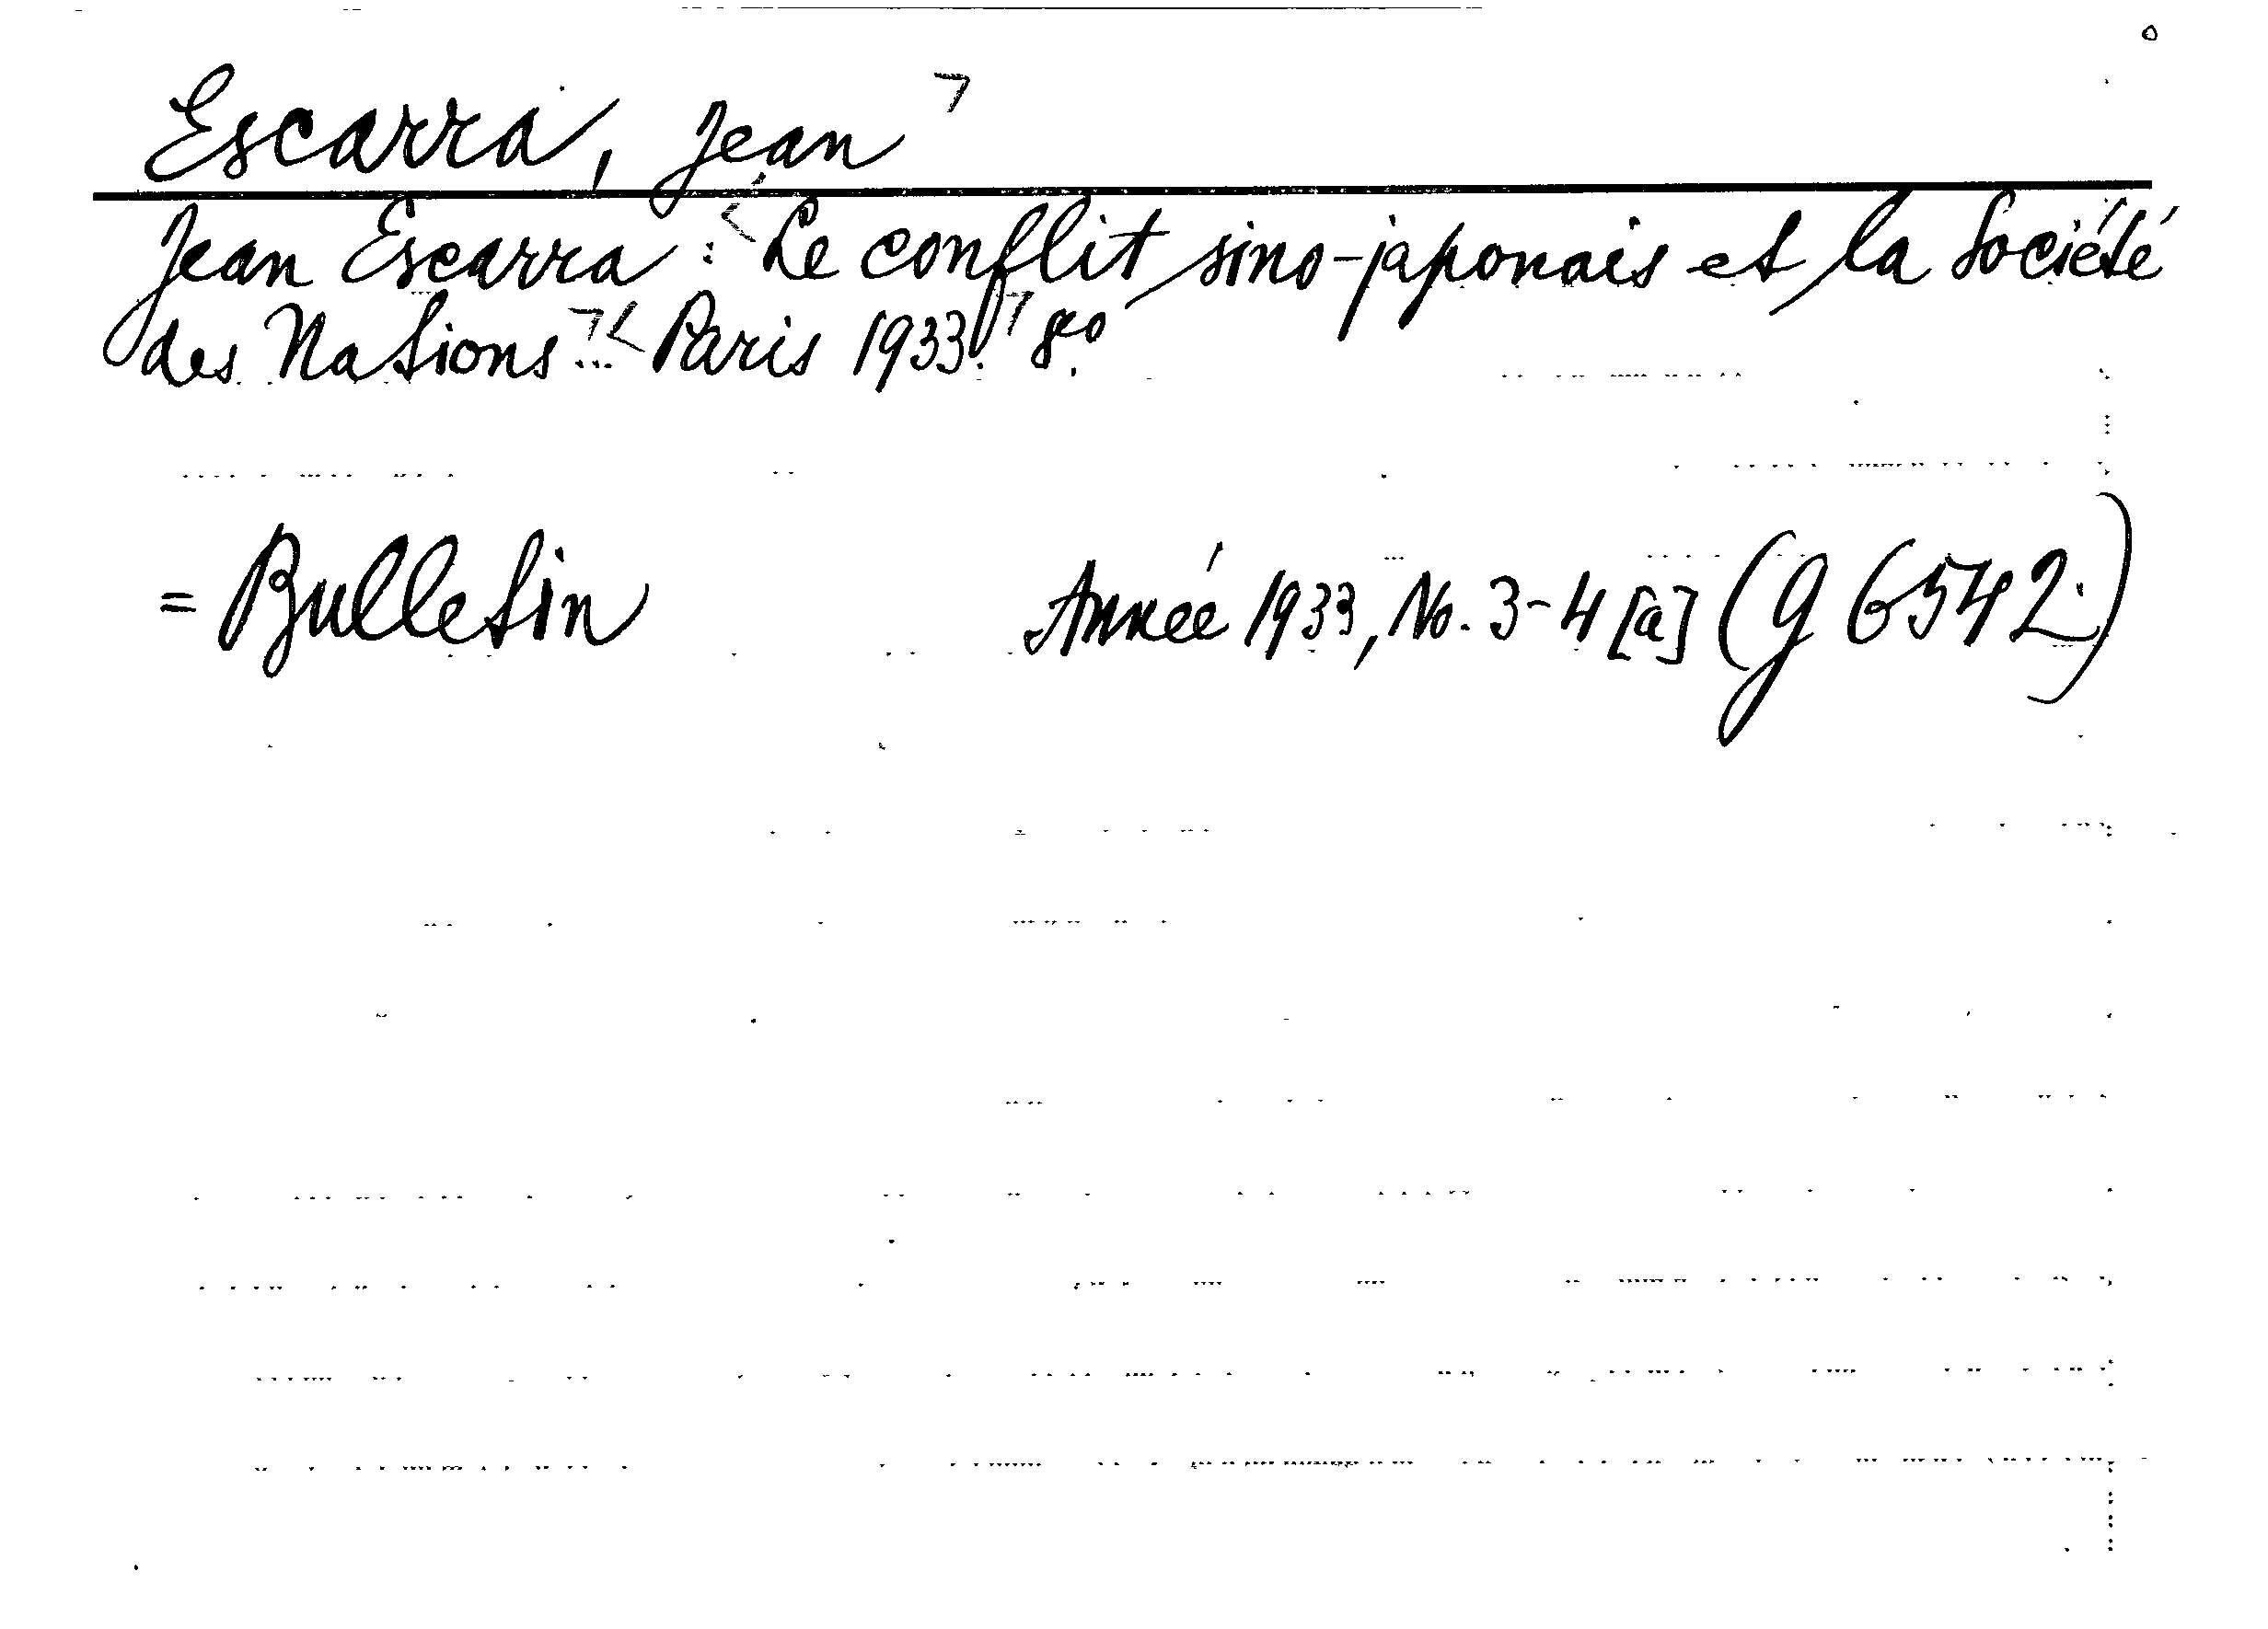 Escarra, Jean
Jean Escarra: Le conflit sino-japonais et la Société
des Nations... Paris 1933. 8o.
= Bulletin Année 1933, No. 3-4 [a] (G 6542)